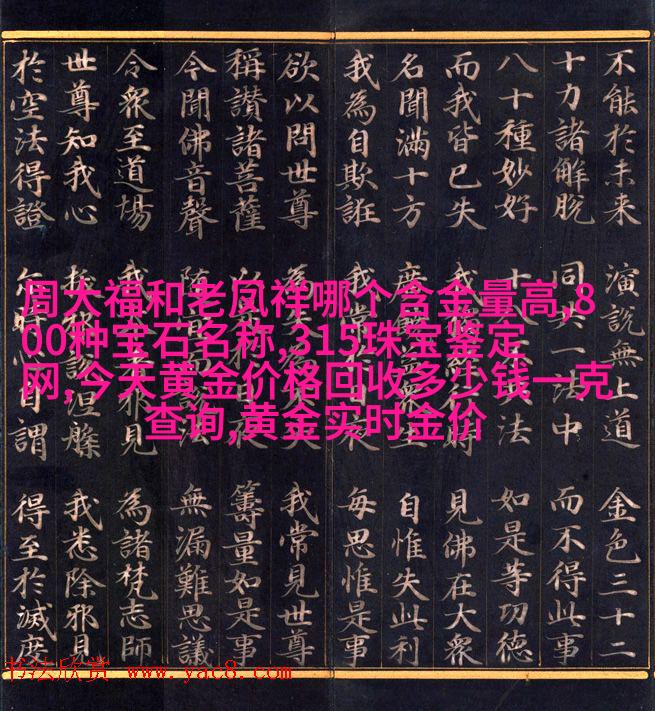 不能於未來 演說無上道 金色三十二
十力諸解脫 同共一法中 而不得此事
八十種妙好 十 法 如是等功德
而我皆已失 我 時 見佛在大眾
名聞滿十方 廣 眾生 自惟失此利
我為自欺誑 我常 每思惟是事
欲以問世尊 為 我常見世尊
稱讚諸菩薩 以 夜 籌量如是事
今聞佛音聲 隨 法 無漏難思議
令眾至道場 我 邪見 為諸梵志師
世尊知我心 拔 說涅槃 我悉除邪見
於空法得證 爾 心自謂 得至於滅度
周大福和老凤祥哪个含金量高,8
00种宝石名称,315珠宝鉴定
网,今天黄金价格回收多少钱一克
查询,黄金实时金价
书法欣赏 www.yac8.com